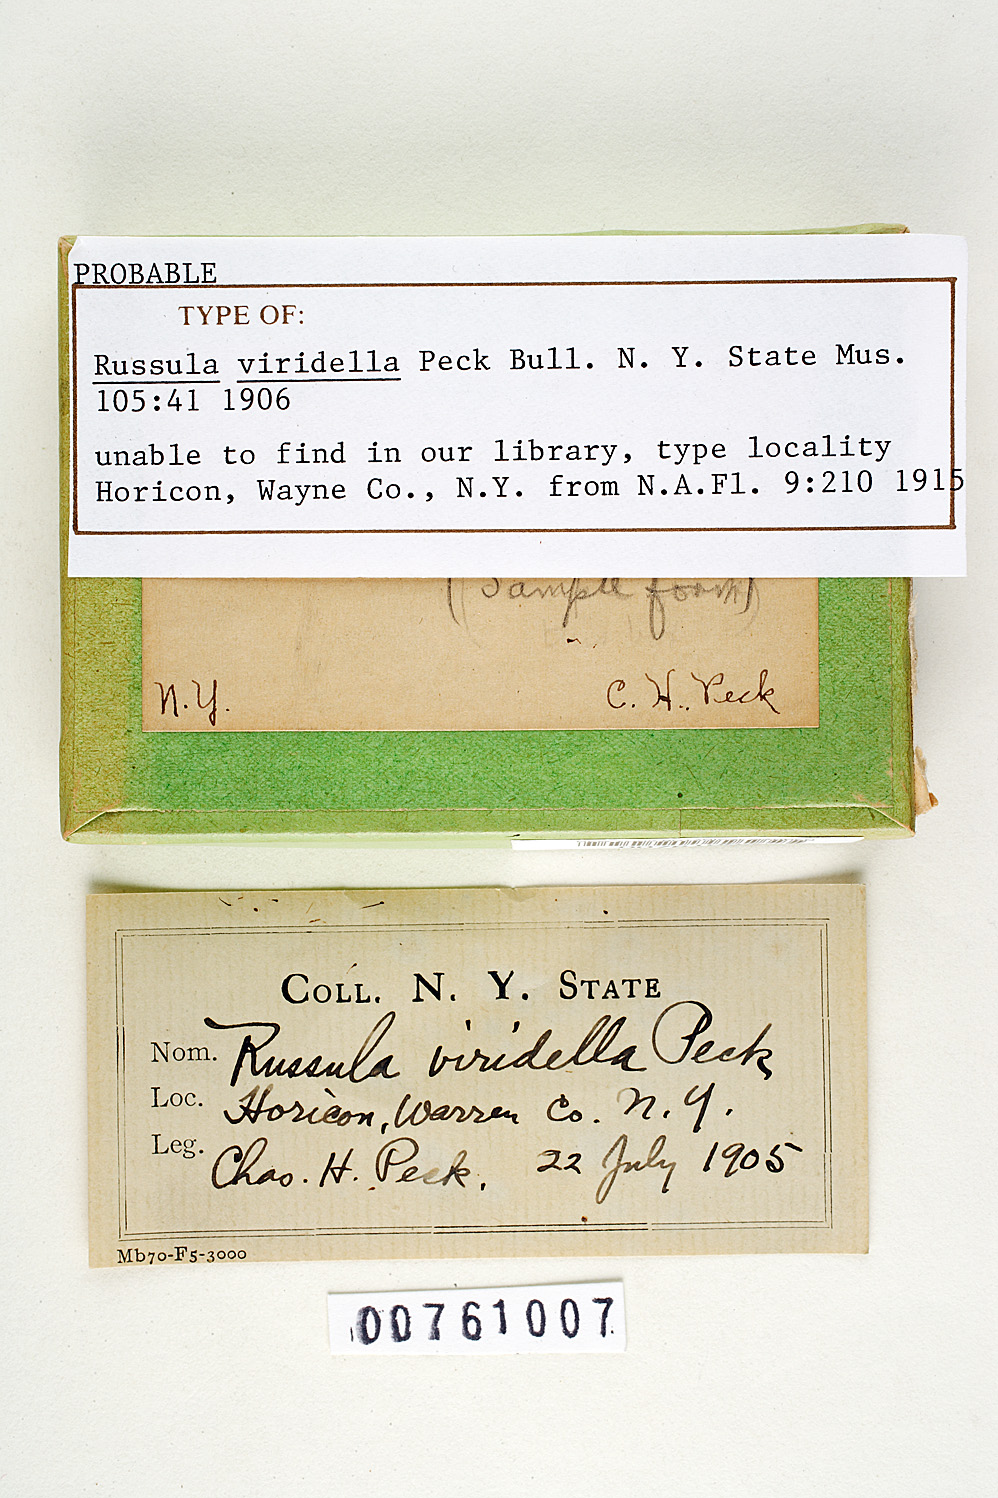 PROBABLE
TYPE OF:
Russula viridella Peck Bull. N. Y. State Mus.
105:41 1906
unable to find in our library, type locality
Horicon, Wayne Co., N.Y. from N.A.Fl. 9:210 1915
(Sample from)
N.Y.
C. H. Peck
COLL. N. Y. STATE
Nom. Russula viridella Peck
Loc. Horicon, Warren Co. N.Y.
Leg. Chas. H. Peck. 22 July 1905
Mb70-F5-3000
00761007